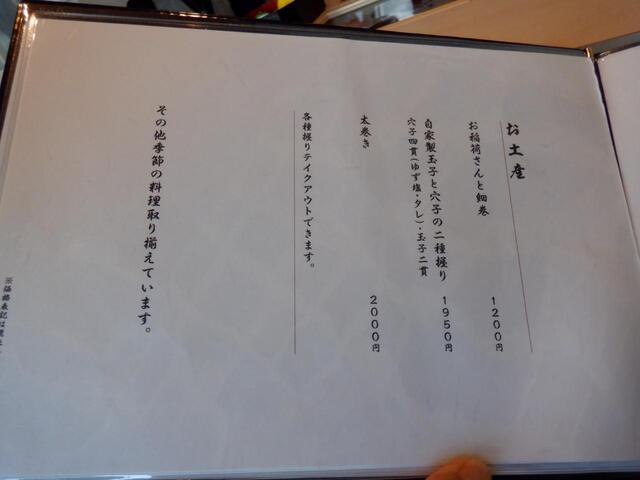 お土産
お稲荷さんと細巻 1200円
自家製玉子と穴子の二種握り 1950円
穴子四貫(ゆず塩・タレ)・玉子二貫
太巻き 2000円
各種握りテイクアウトできます。
その他季節の料理取り揃えています。
※価格表記は